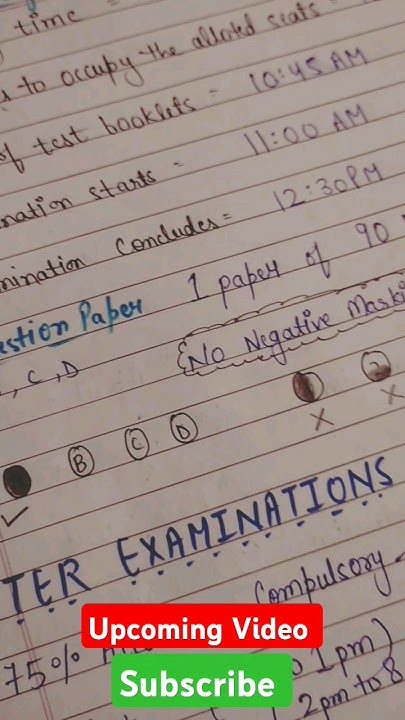 time =
to occupy the alloted seats -
of test booklets - 10:45 AM
nation starts = 11:00 AM
mination Concludes = 12:30PM
estion Paper 1 paper of 90
, C, D No Negative Marki
B C D
X X
TER EXAMINATIONS
75% Compulsory
1pm)
2pm to 8
Upcoming Video
Subscribe